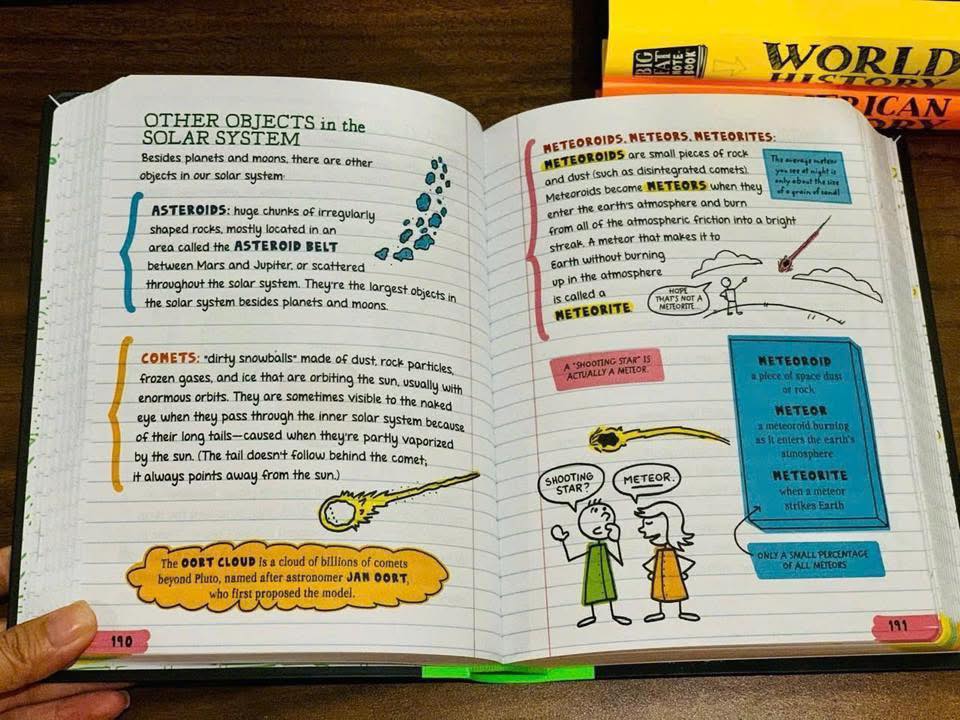 BIG FAT NOTE-BOOK
WORLD
HISTORY
OTHER OBJECTS in the
SOLAR SYSTEM
Besides planets and moons, there are other
objects in our solar system.
ASTEROIDS: huge chunks of irregularly
shaped rocks, mostly located in an
area called the ASTEROID BELT
between Mars and Jupiter, or scattered
throughout the solar system. They're the largest objects in
the solar system besides planets and moons.
COMETS: "dirty snowballs" made of dust, rock particles,
frozen gases, and ice that are orbiting the sun, usually with
enormous orbits. They are sometimes visible to the naked
eye when they pass through the inner solar system because
of their long tails—caused when they're partly vaporized
by the sun. (The tail doesn't follow behind the comet;
it always points away from the sun.)
The OORT CLOUD is a cloud of billions of comets
beyond Pluto, named after astronomer JAN OORT,
who first proposed the model.
190
METEOROIDS, METEORS, METEORITES:
METEOROIDS are small pieces of rock
and dust (such as disintegrated comets).
Meteoroids become METEORS when they
enter the earth's atmosphere and burn
from all of the atmospheric friction into a bright
streak. A meteor that makes it to
Earth without burning
up in the atmosphere
is called a
METEORITE
The average meteor
you see at night is
only about the size
of a grain of sand!
HOPE
THAT'S NOT A
METEORITE...
A "SHOOTING STAR" IS
ACTUALLY A METEOR.
METEOROID
a piece of space dust
or rock
METEOR
a meteoroid burning
as it enters the earth's
atmosphere
METEORITE
when a meteor
strikes Earth
ONLY A SMALL PERCENTAGE
OF ALL METEORS
SHOOTING
STAR?
METEOR.
191